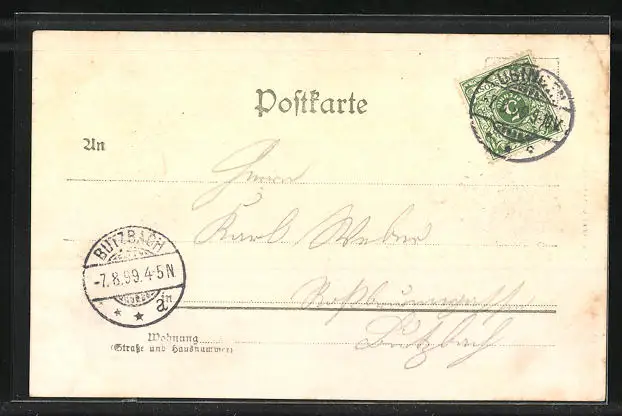 Postkarte
An
Herrn
Karl Weber
Butzbach
Wohnung
(Straße und Hausnummer)
BUTZBACH
-7.8.99.4-5N
* * a
5